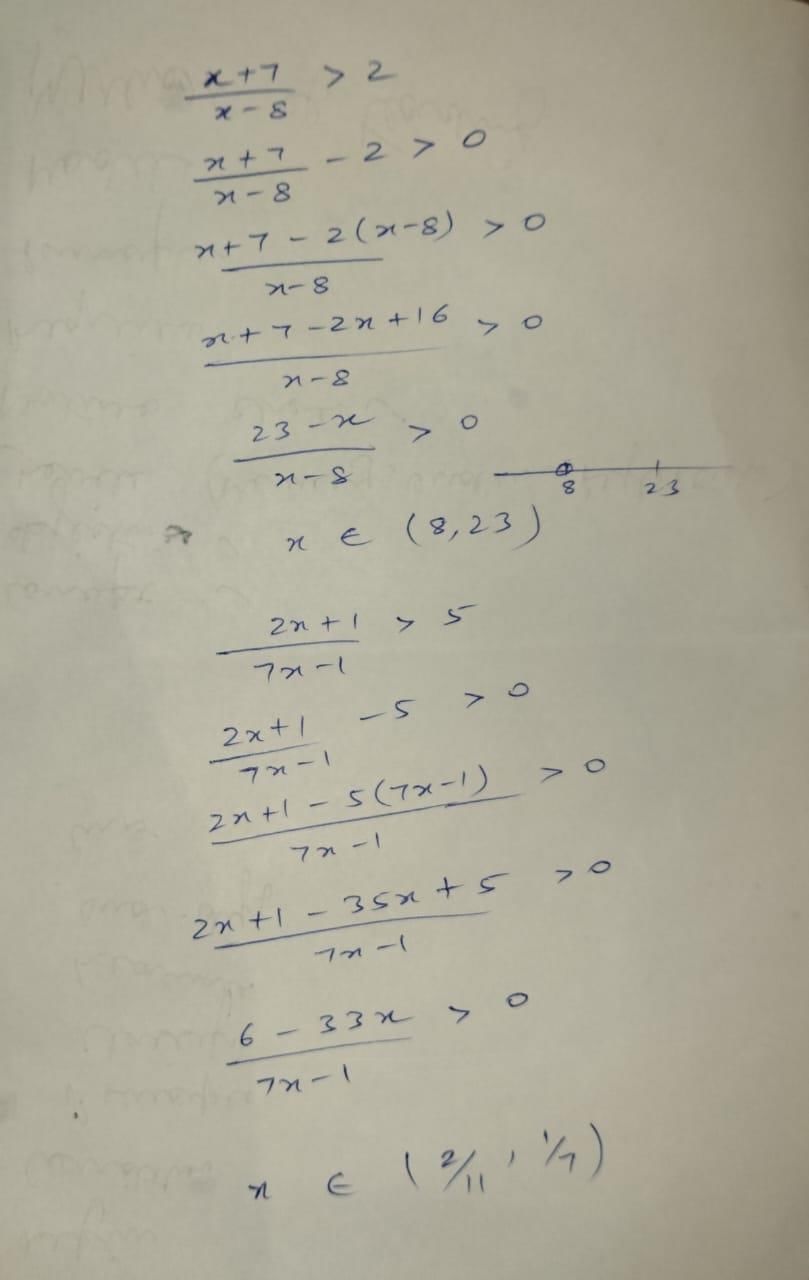 x+7 > 2
x-8
x+7 - 2 > 0
x-8
x+7 - 2(x-8) > 0
x-8
x+7-2x+16 > 0
x-8
23-x > 0
x-8
8 23
x ∈ (8,23)
2x+1 > 5
7x-1
2x+1 - 5 > 0
7x-1
2x+1 - 5(7x-1) > 0
7x-1
2x+1 - 35x + 5 > 0
7x-1
6 - 33x > 0
7x-1
x ∈ (2/11, 1/7)